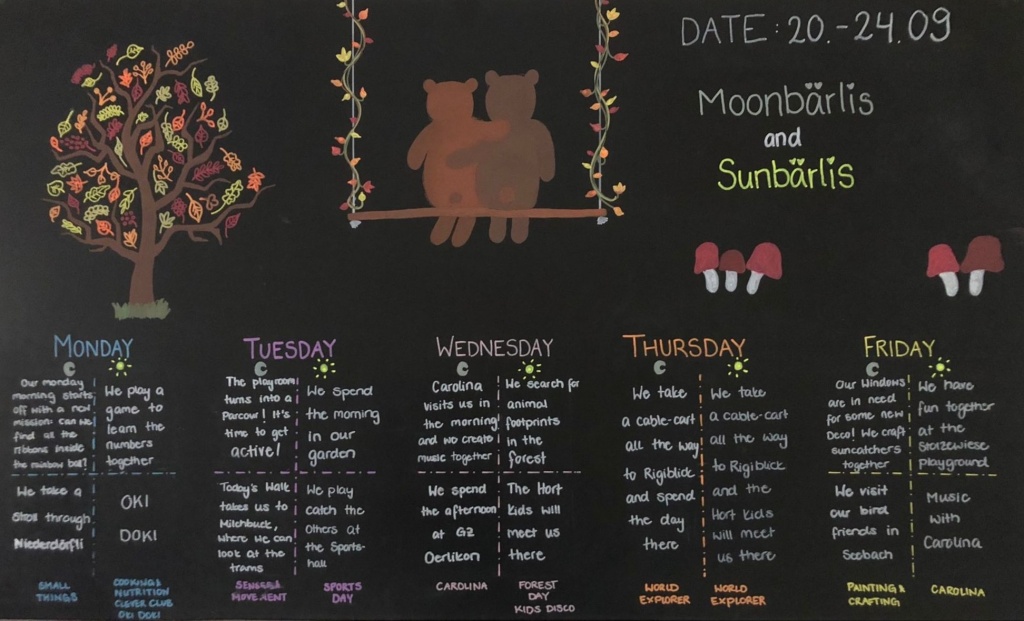 DATE: 20.-24.09
Moonbärlis
and
Sunbärlis
MONDAY
Our monday
morning starts
off with a new
mission: can we
find all the
ribbons inside
the rainbow ball?
We play a
game to
learn the
numbers
together
We take a
Stroll through
Niederdörfli
OKI
DOKI
SMALL
THINGS
COOKING &
NUTRITION
CLEVER CLUB
OKI DOKI
TUESDAY
The playroom
turns into a
Parcour! It's
time to get
active!
We spend
the morning
in our
garden
Today's Walk
takes us to
Milchbuck,
where we can
look at the
trams
We play
catch the
Others at
the Sports-
hall
SENSES &
MOVEMENT
SPORTS
DAY
WEDNESDAY
Carolina
visits us in
the morning
and we create
music together
We search for
animal
footprints
in the
forest
We spend
the afternoon
at GZ
Oerlikon
The Hort
kids will
meet us
there
CAROLINA
FOREST
DAY
KIDS DISCO
THURSDAY
We take
a cable-cart
all the way
to Rigiblick
and spend
the day
there
We take
a cable-cart
all the way
to Rigiblick
and the
Hort kids
will meet
us there
WORLD
EXPLORER
WORLD
EXPLORER
FRIDAY
Our Windows
are in need
for some new
Deco! We craft
suncatchers
together
We have
fun together
at the
Storzewiese
playground
We visit
our bird
friends in
Seebach
Music
with
Carolina
PAINTING &
CRAFTING
CAROLINA